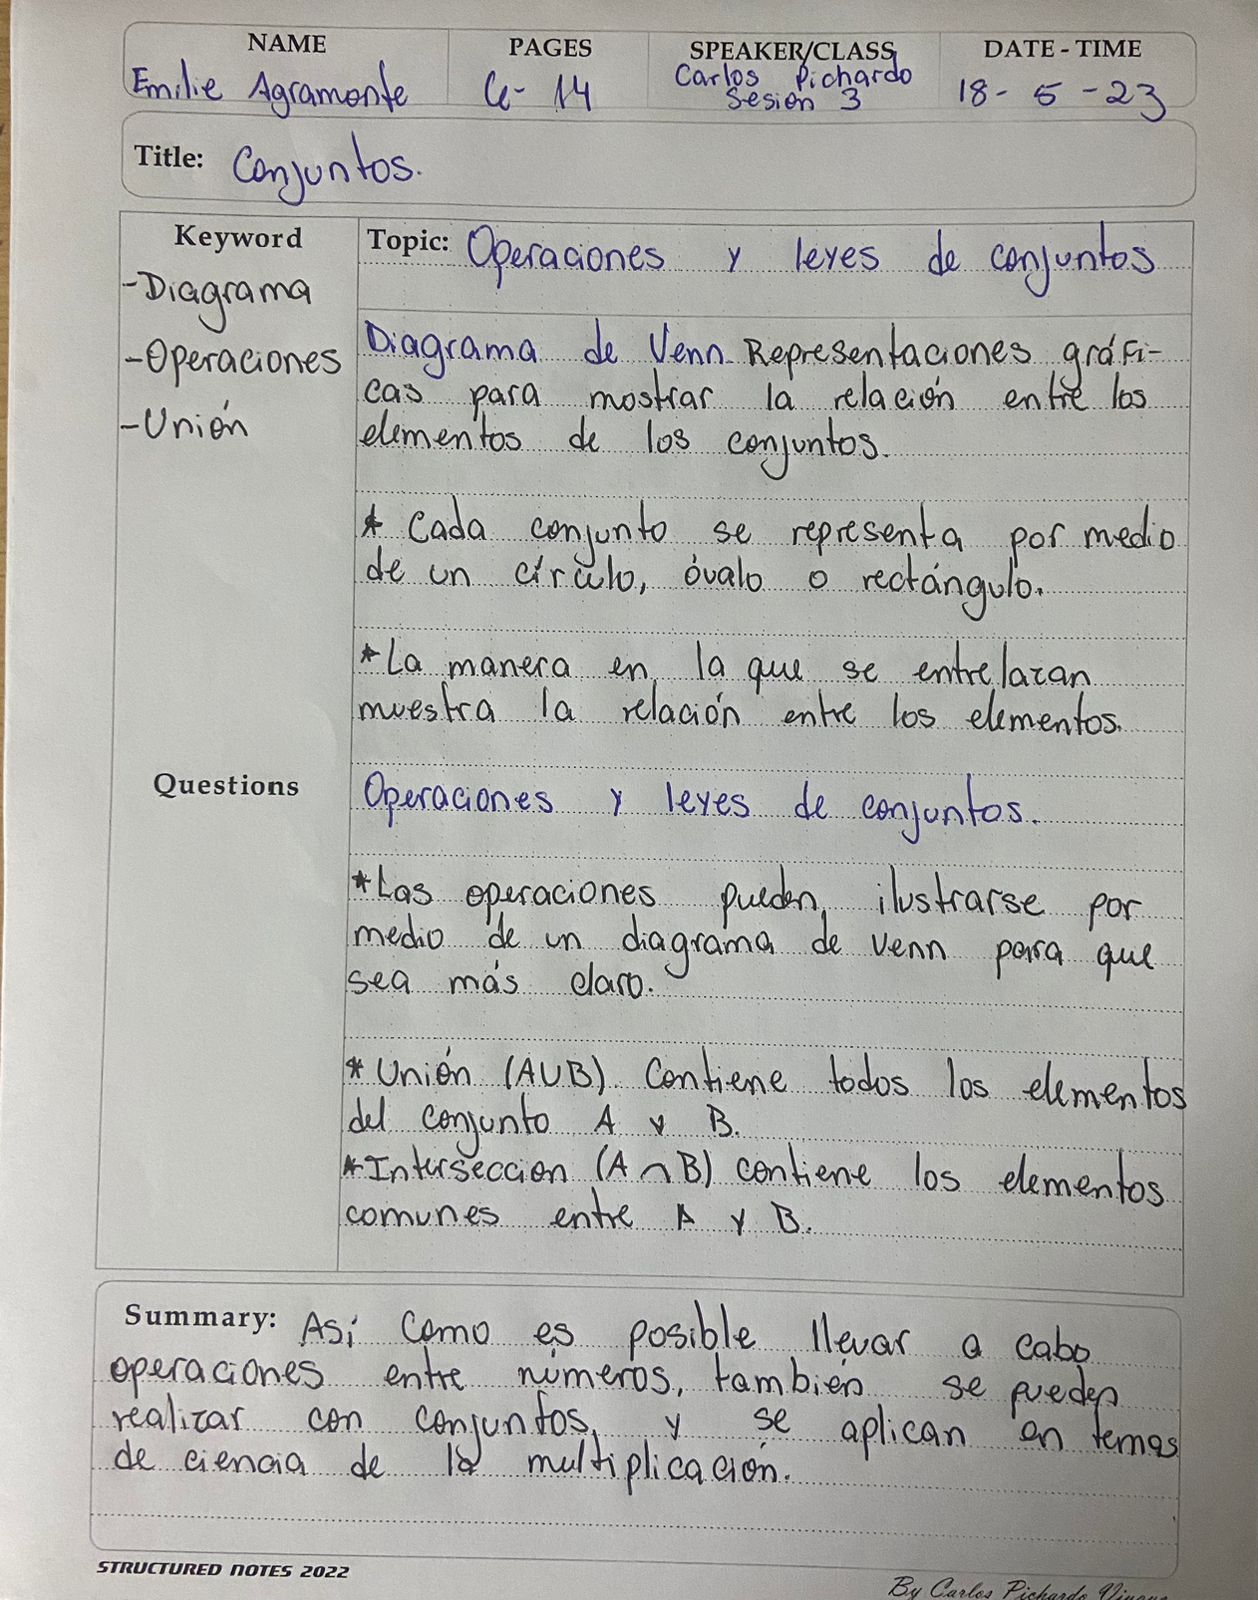 NAME PAGES SPEAKER/CLASS DATE - TIME
Emilie Agramonte 14 Carlos Pichardo 18-5-23
Sesion 3
Title: Conjuntos.
Keyword
-Diagrama
-Operaciones
-Unión
Topic: Operaciones y leyes de conjuntos
Diagrama de Venn. Representaciones gráfi-
cas para mostrar la relación entre los
elementos de los conjuntos.
* Cada conjunto se representa por medio
de un círculo, óvalo o rectángulo.
*La manera en la que se entrelazan
muestra la relación entre los elementos.
Questions
Operaciones y leyes de conjuntos.
*Las operaciones pueden ilustrarse por
medio de un diagrama de Venn para que
sea más claro.
* Unión (AUB). Contiene todos los elementos
del conjunto A y B.
*Interseccion (A∩B) contiene los elementos
comunes entre A y B.
Summary: Así como es posible llevar a cabo
operaciones entre números, también se pueden
realizar con conjuntos, y se aplican en temas
de ciencia de la multiplicación.
STRUCTURED NOTES 2022
By Carlos Pichardo